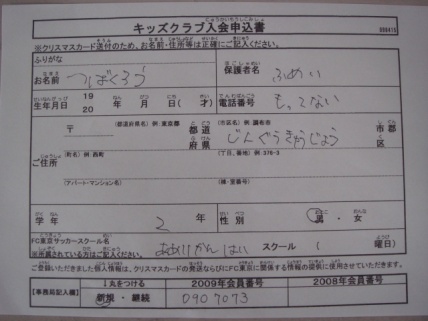 キッズクラブ入会申込書
※クリスマスカード送付のため、お名前・住所等は正確にご記入ください。
ふりがな
お名前 つばくろう 保護者名 ふめい
生年月日 19 20 年 月 日( 才) 電話番号 もってない
〒 (都道府県名) 例:東京都 都道府県 (市区名) 例:調布市 じんぐうきゅうじょう 市郡区
ご住所 (町名) 例:西町 (丁目、番地) 例:376-3
(アパート・マンション名) (棟・室番号)
学年 2 年 性別 男・女
FC東京サッカースクール名
※所属されている方はご記入ください。 スクール ( 曜日)
ご登録いただきました個人情報は、クリスマスカードの発送ならびにFC東京に関連する情報の提供に使用させていただきます。
【事務局記入欄】 ↓丸をつける 2009年会員番号 2008年会員番号
新規・継続 0907073